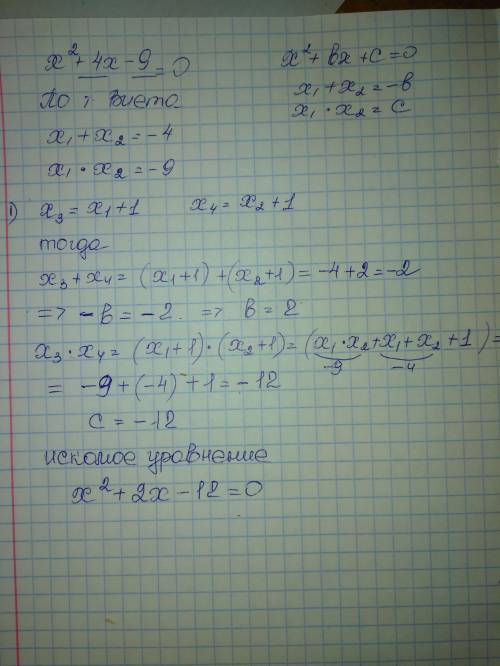 x² + 4x - 9 = 0
По т Виета
x₁ + x₂ = -4
x₁ · x₂ = -9
x² + bx + c = 0
x₁ + x₂ = -b
x₁ · x₂ = c
1) x₃ = x₁ + 1 x₄ = x₂ + 1
тогда
x₃ + x₄ = (x₁+1) + (x₂+1) = -4 + 2 = -2
=> -b = -2 => b = 2
x₃ · x₄ = (x₁+1) · (x₂+1) = (x₁ · x₂ + x₁ + x₂ + 1) =
-9 -4
= -9 + (-4) + 1 = -12
c = -12
искомое уравнение
x² + 2x - 12 = 0